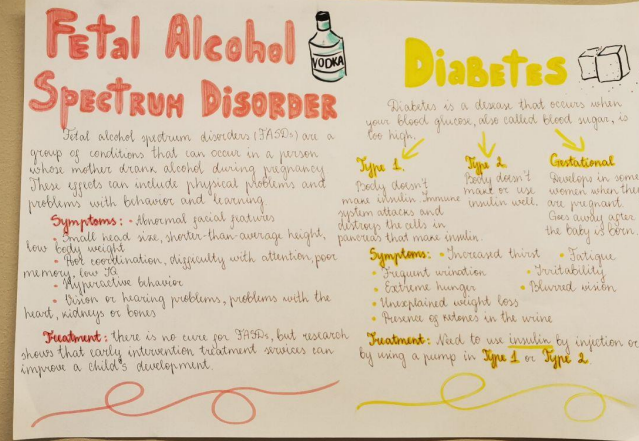 Fetal Alcohol
Spectrum Disorder
VODKA
Fetal alcohol spectrum disorders (FASDs) are a
group of conditions that can occur in a person
whose mother drank alcohol during pregnancy.
These effects can include physical problems and
problems with behavior and learning.
Symptoms: • Abnormal facial features
• Small head size, shorter-than-average height,
low body weight
• Poor coordination, difficulty with attention, poor
memory, low IQ
• Hyperactive behavior
• Vision or hearing problems, problems with the
heart, kidneys or bones
Treatment: there is no cure for FASDs, but research
shows that early intervention treatment services can
improve a child's development.
Diabetes
Diabetes is a desease that occurs when
your blood glucose, also called blood sugar, is
too high.
Type 1.
Body doesn't
make insulin. Immune
system attacks and
destroys the cells in
pancreas that make insulin.
Type 2.
Body doesn't
make or use
insulin well.
Gestational
Develops in some
women when they
are pregnant.
Goes away after
the baby is born.
Symptoms: • Increased thirst • Fatigue
• Frequent urination • Irritability
• Extreme hunger • Blurred vision
• Unexplained weight loss
• Presence of ketones in the urine
Treatment: Need to use insulin by injection or
by using a pump in Type 1 or Type 2.